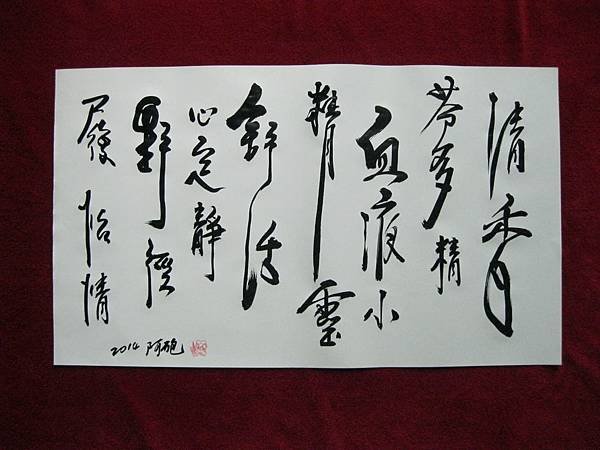 清香
芬多精
血液小
精靈
舒活
心定靜
野徑
履怡情
2014 阿